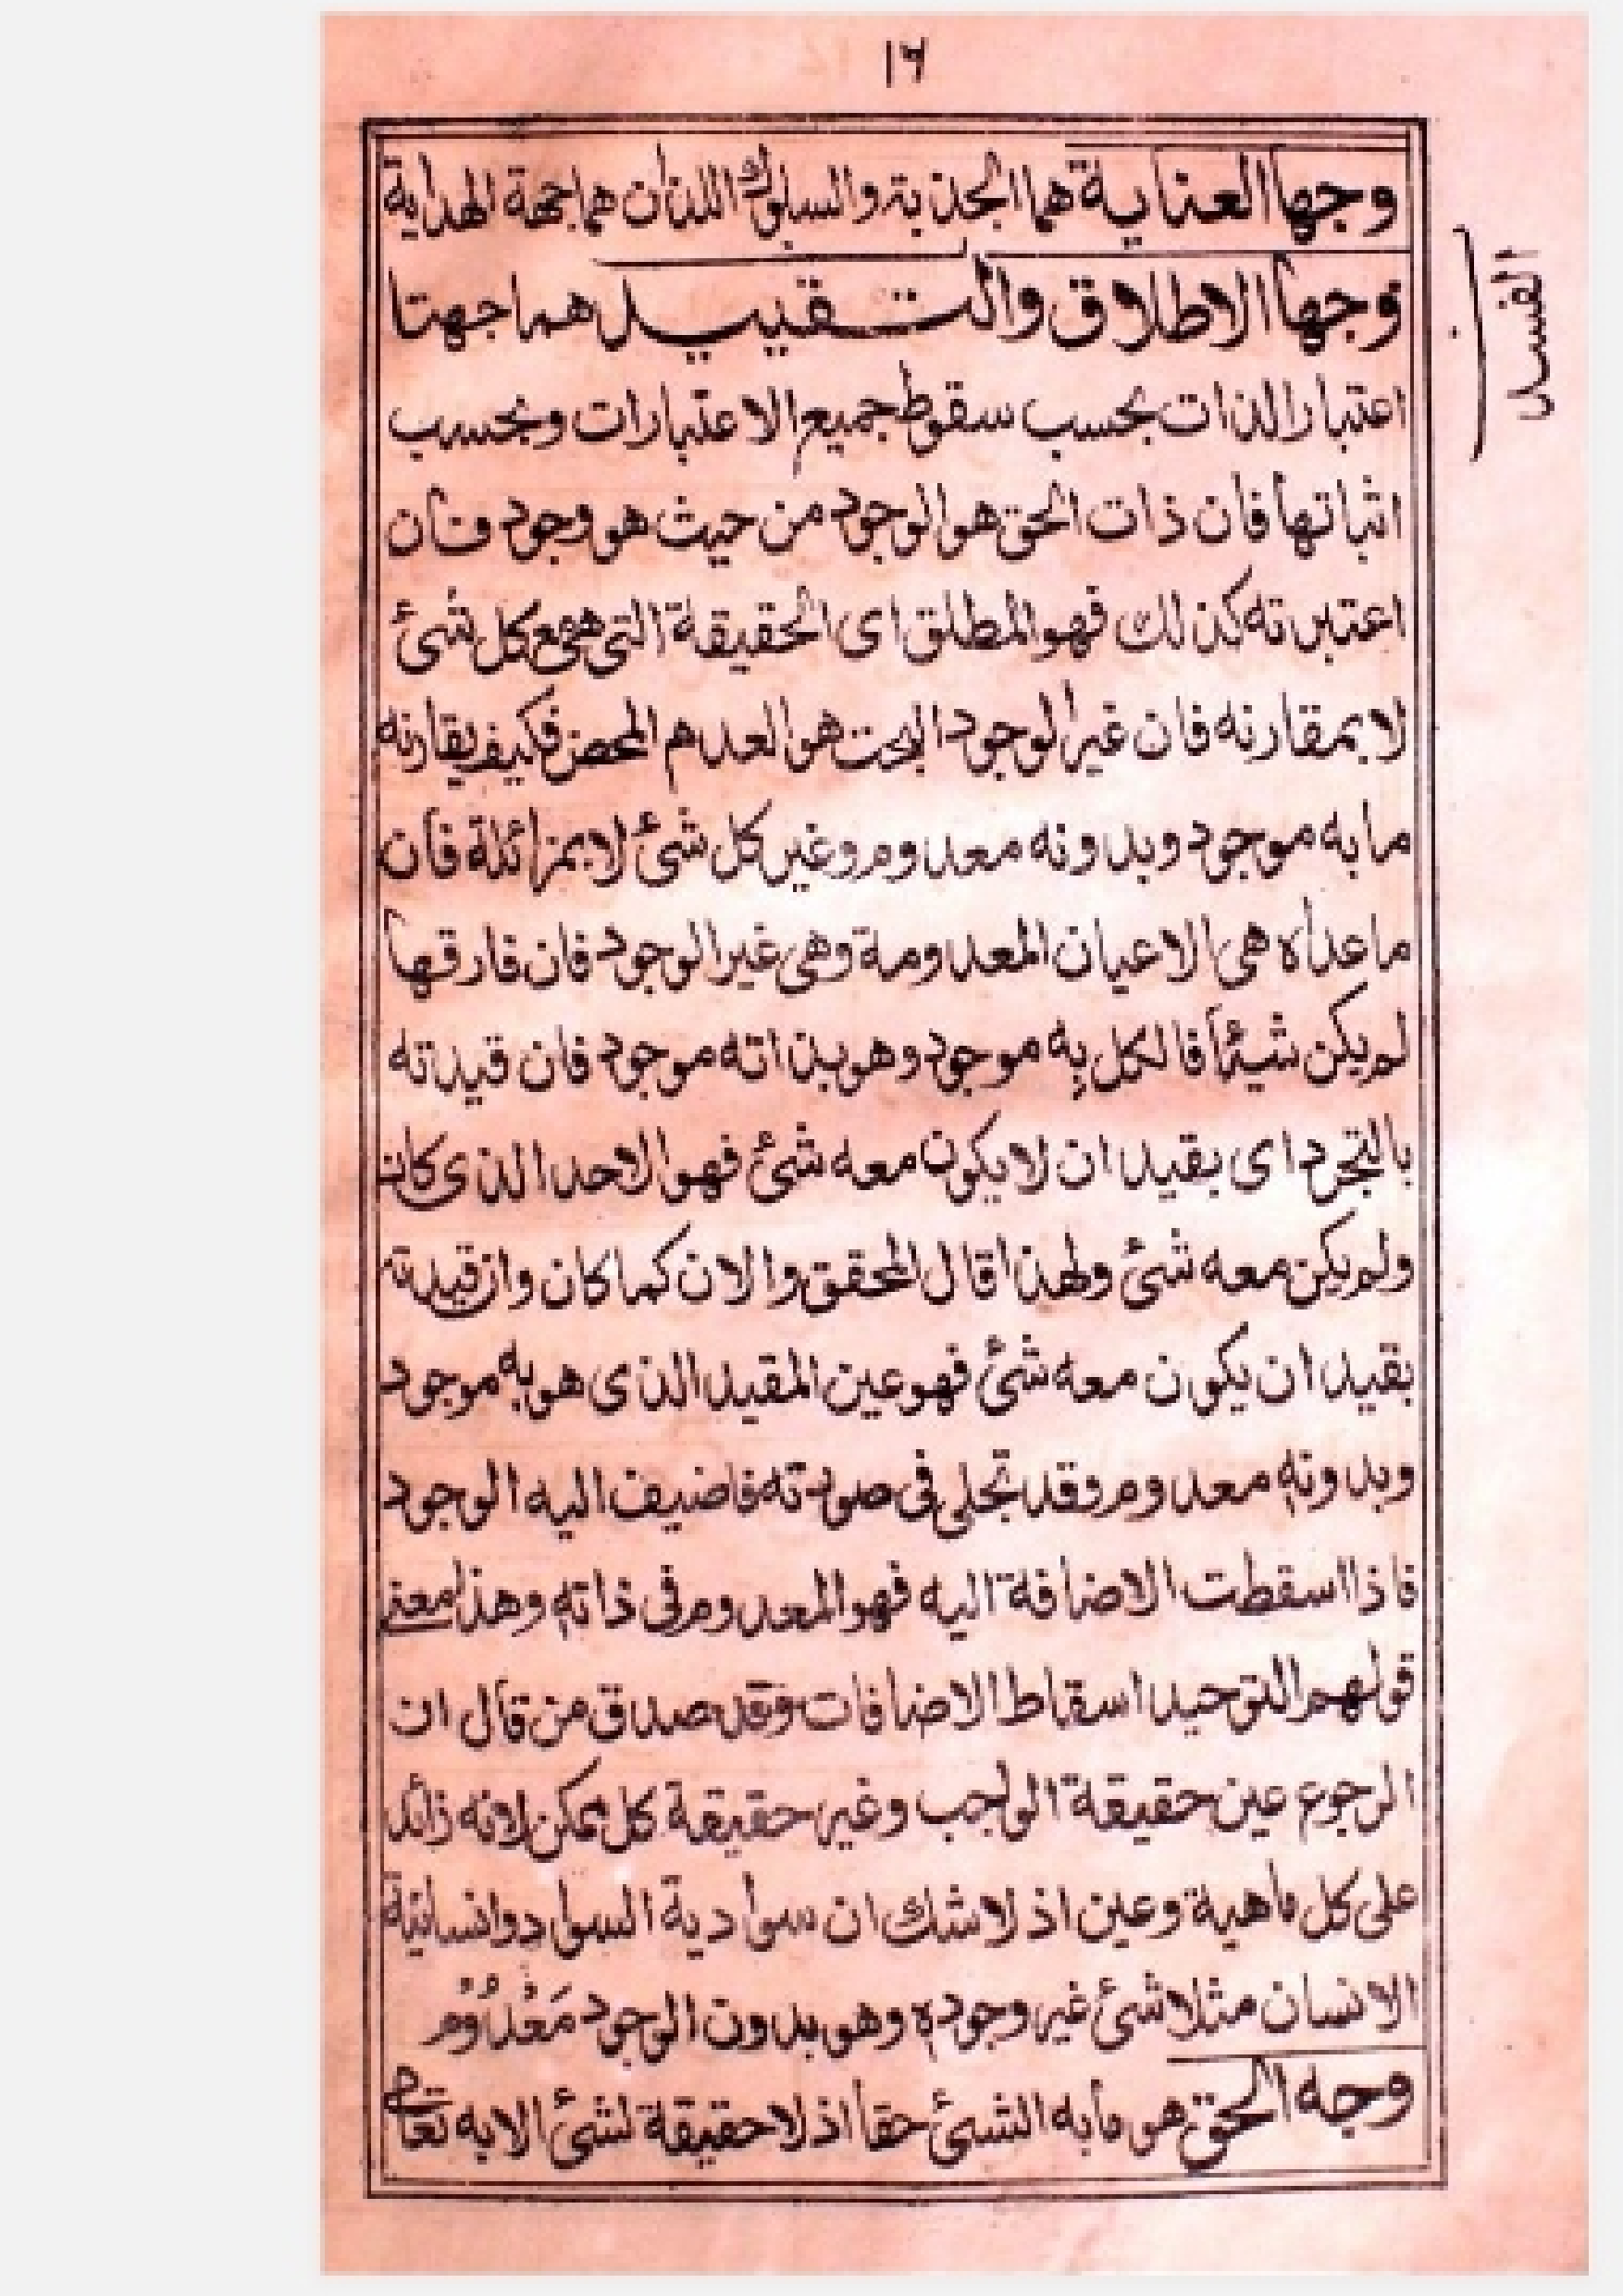 ١٦
وجها العناية هما الجذبة والسلوك اللذان هما جهة الهداية
وجها الاطلاق والتقييد هما جهتا
اعتبار الذات بحسب سقوط جميع الاعتبارات وبحسب
اثباتها فان ذات الحق هو الوجود من حيث هو وجود فان
اعتبرته كذلك فهو المطلق اى الحقيقة التى هى مع كل شئ
لا بمقارنه فان غير الوجود البحت هو العدم المحض فكيف يقارنه
ما به موجود وبدونه معدوم وغير كل شئ لا بمزائلة فان
ما عداه هى الاعيان المعدومة وهى غير الوجود فان فارقها
لم يكن شيئا فالكل به موجود وهو بذاته موجود فان قيدته
بالتجرد اى بقيد ان لا يكون معه شئ فهو الاحد الذى كان
ولم يكن معه شئ ولهذا قال المحقق والان كما كان وان قيدته
بقيد ان يكون معه شئ فهو عين المقيد الذى هو به موجود
وبدونه معدوم وقد تجلى فى صورته فاضيف اليه الوجود
فاذا اسقطت الاضافة اليه فهو المعدوم فى ذاته وهذا معنى
قولهم التوحيد اسقاط الاضافات وقد صدق من قال ان
الرجوع عين حقيقة الواجب وغير حقيقة كل ممكن لانه زائد
على كل ماهية وعين اذ لا شك ان سوادية السواد وانسانية
الانسان مثلا شئ غير وجوده وهو بدون الوجود مَعْدُوْم
وجه الحق هو ما به الشئ حقا اذ لا حقيقة لشئ الا به تعالى